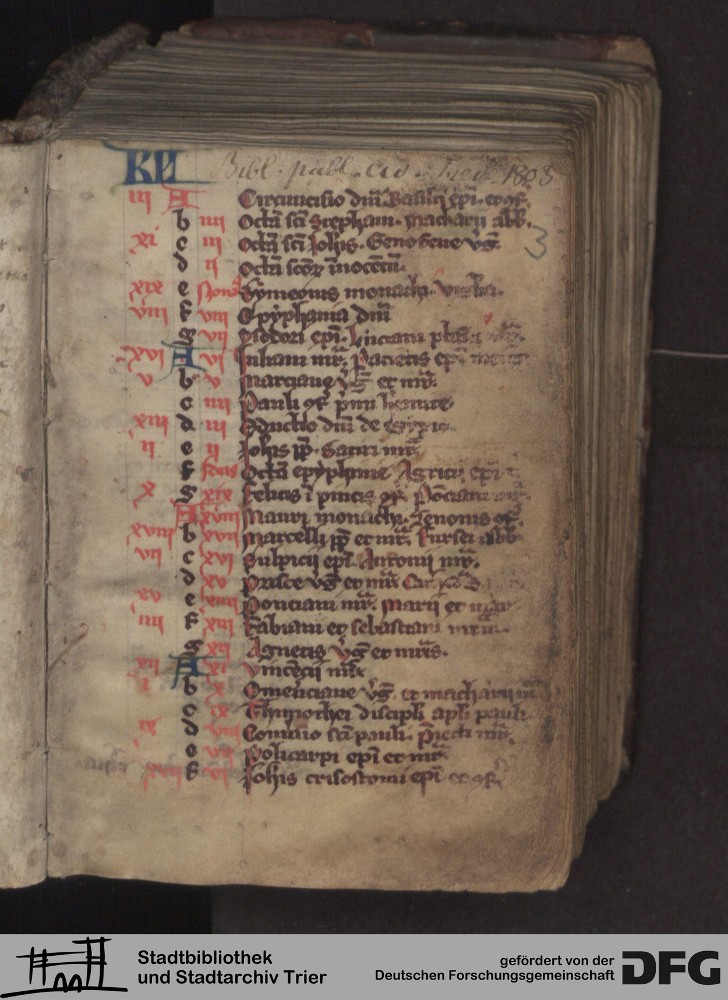 KL Bibl. publ. civ. Trev. 1808
3
iii A Circumcisio dni Basilii epi. et qf.
b iiii Octa sci Stephani. Macharii abb.
xi c iii Octa sci Johis. Genofeve vg.
d ii Octa scor innocetu.
xix e Non Symeonis monachi.
viii f viii Epyphania dni
g vii Ysidori epi. Luciani
xvi A vi Juliani mr. Pacietis epi
v b v Marciane vg et mr.
c iiii Pauli qf pmi
xiii d iii Eductio dni de egypto
ii e ii Johis pp. Satiri mr
f Idus Octa epyphanie Agricii epi
x g xix Felicis i pincis qf. Pociani
A xviii Mauri monachi. Zenonis qf.
xviii b xvii Marcelli pp et mr. Fursei abb
vii c xvi Sulpicii epi. Antonii mr.
d xv Prisce vg et mr
xv e xiiii Ponciani mr. Marii et
iiii f xiii Fabiani et sebastiani
g xii Agnetis vg et mris.
xii A xi Vincecii mr
i b x Emerenciane vg. et macharii mr
c ix Thimothei discipli apli pauli.
ix d viii Comisio sci pauli.
e vii Policarpi epi et mr.
f vi Johis crisostomi epi et qf
Stadtbibliothek
und Stadtarchiv Trier
gefördert von der
Deutschen Forschungsgemeinschaft
DFG